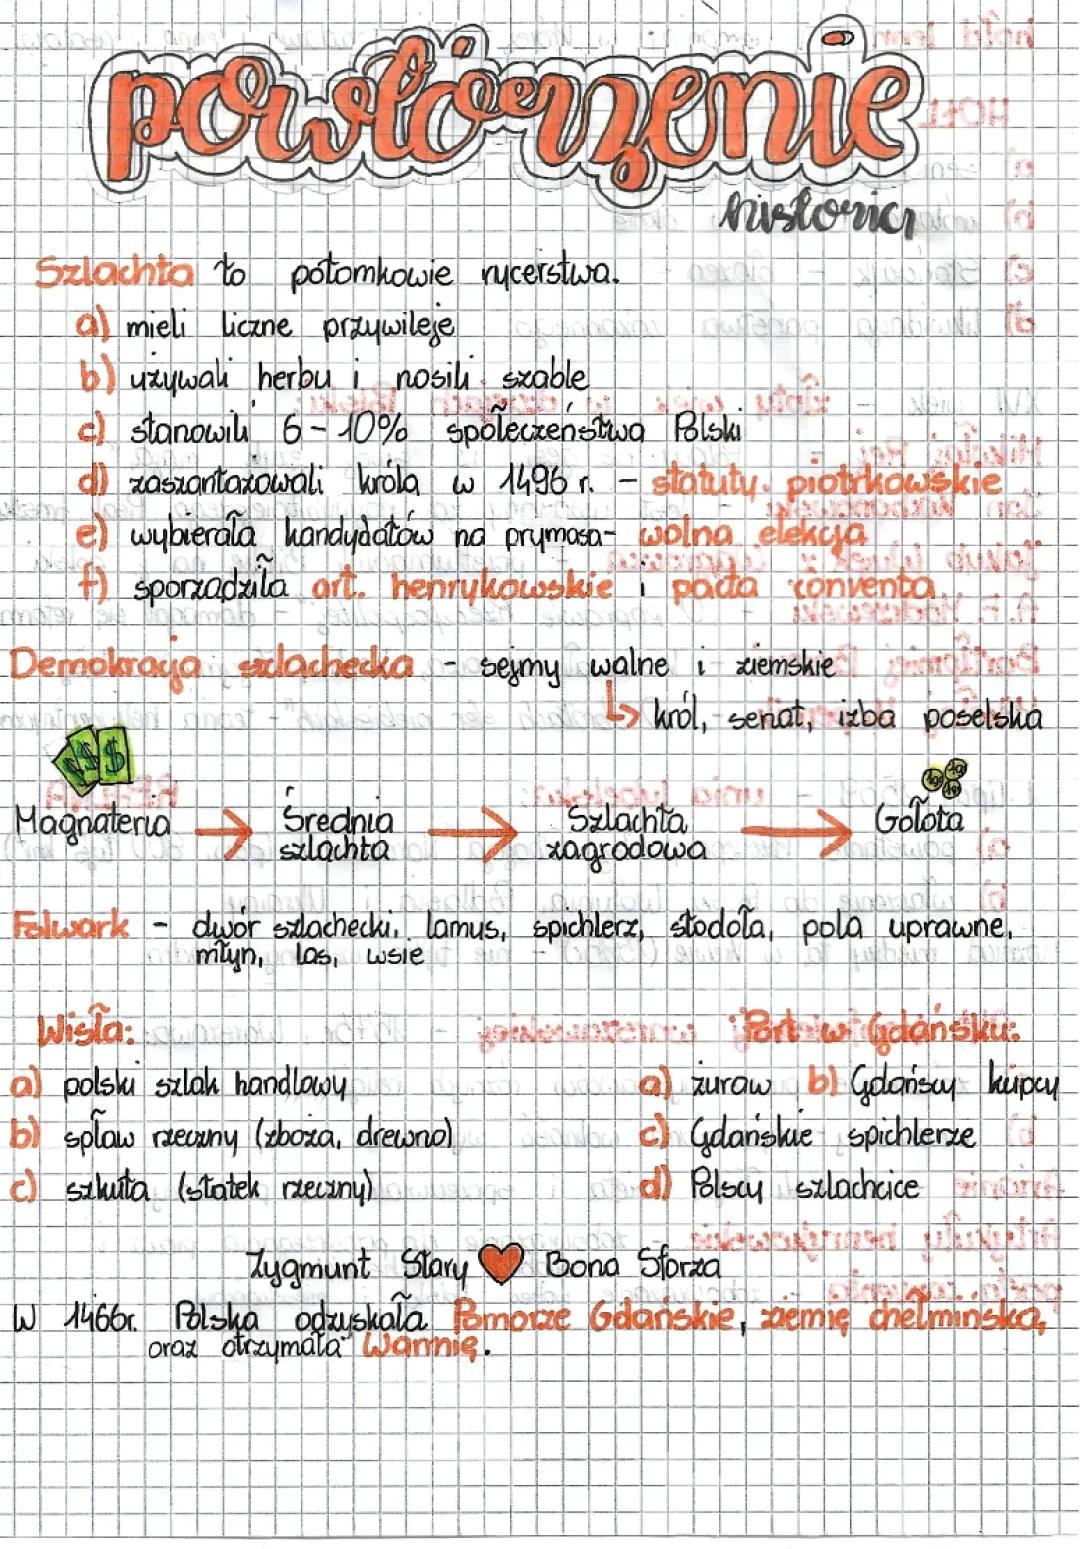 powtórzenie
historia
Szlachta to potomkowie rycerstwa.
a) mieli liczne przywileje
b) używali herbu i nosili szable
c) stanowili 6-10% społeczeństwa Polski
d) zaszantażowali króla w 1496 r. - statuty piotrkowskie
e) wybierała kandydatów na prymasa- wolna elekcja
f) sporządziła art. henrykowskie i pacta conventa
Demokracja szlachecka - sejmy walne i ziemskie
↳ król, senat, izba poselska
Magnateria → Średnia szlachta → Szlachta zagrodowa → Gołota
Folwark - dwór szlachecki, lamus, spichlerz, stodoła, pola uprawne,
młyn, las, wsie
Wisła:
a) polski szlak handlowy
b) spław rzeczny (zboża, drewno)
c) szkuta (statek rzeczny)
Port w Gdańsku:
a) żuraw b) Gdańscy kupcy
c) Gdańskie spichlerze
d) Polscy szlachcice
Zygmunt Stary ♥ Bona Sforza
W 1466r. Polska odzyskała Pomorze Gdańskie, ziemię chełmińską,
oraz otrzymała Warmię.